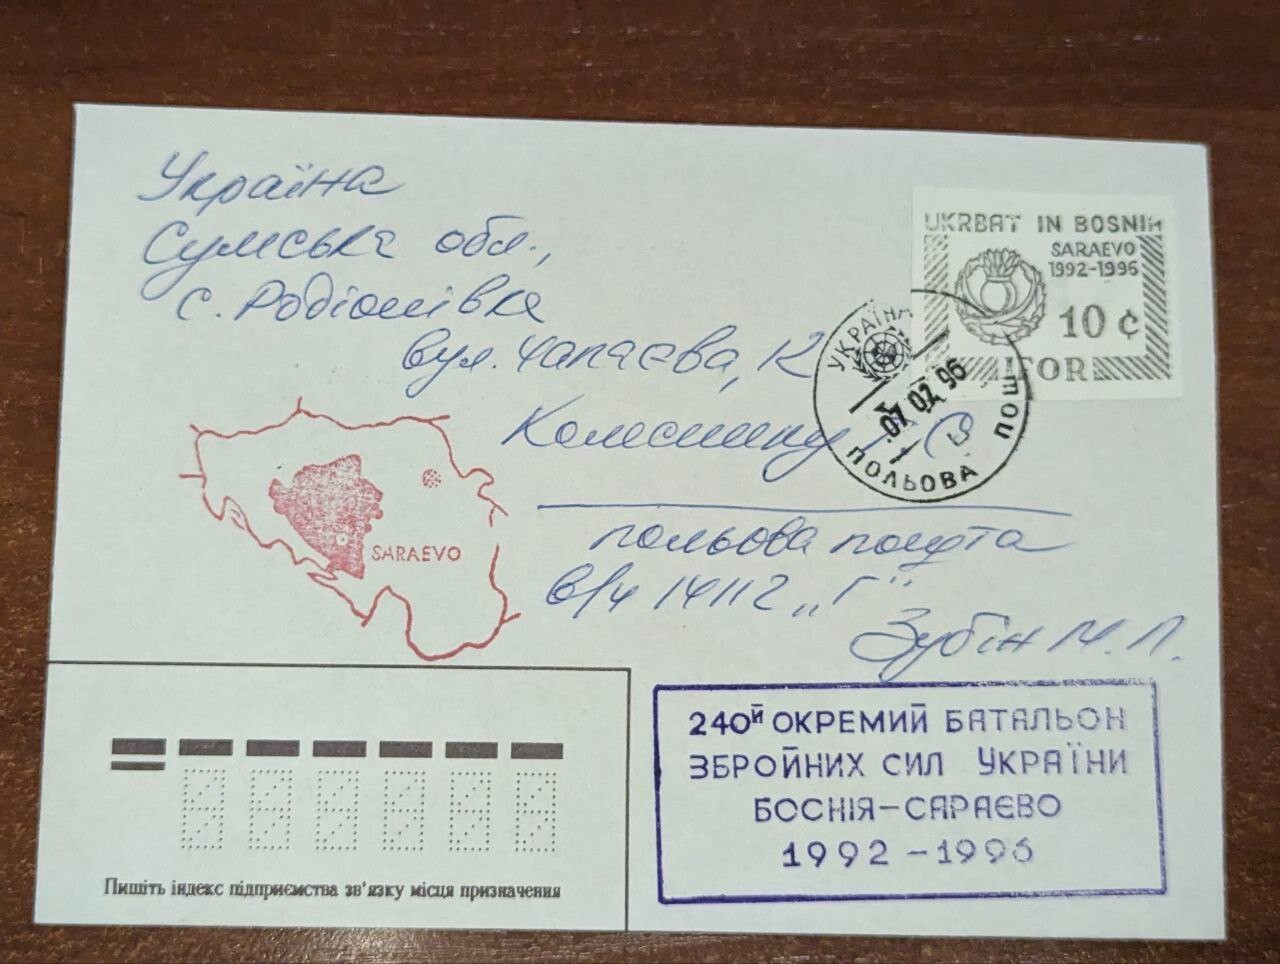 Україна
Сумська обл.,
с. Родіонівка
вул. Чапаєва, 12
Колеснику
UKRBAT IN BOSNIA
SARAEVO
1992-1996
10 ¢
IFOR
УКРАЇНА
07 02 96
ПОЛЬОВА ПОШ
SARAEVO
польова пошта
в/ч 14112 „Г"
Зубін М. П.
240й ОКРЕМИЙ БАТАЛЬОН
ЗБРОЙНИХ СИЛ УКРАЇНИ
БОСНІЯ-САРАЄВО
1992-1996
Пишіть індекс підприємства зв'язку місця призначення